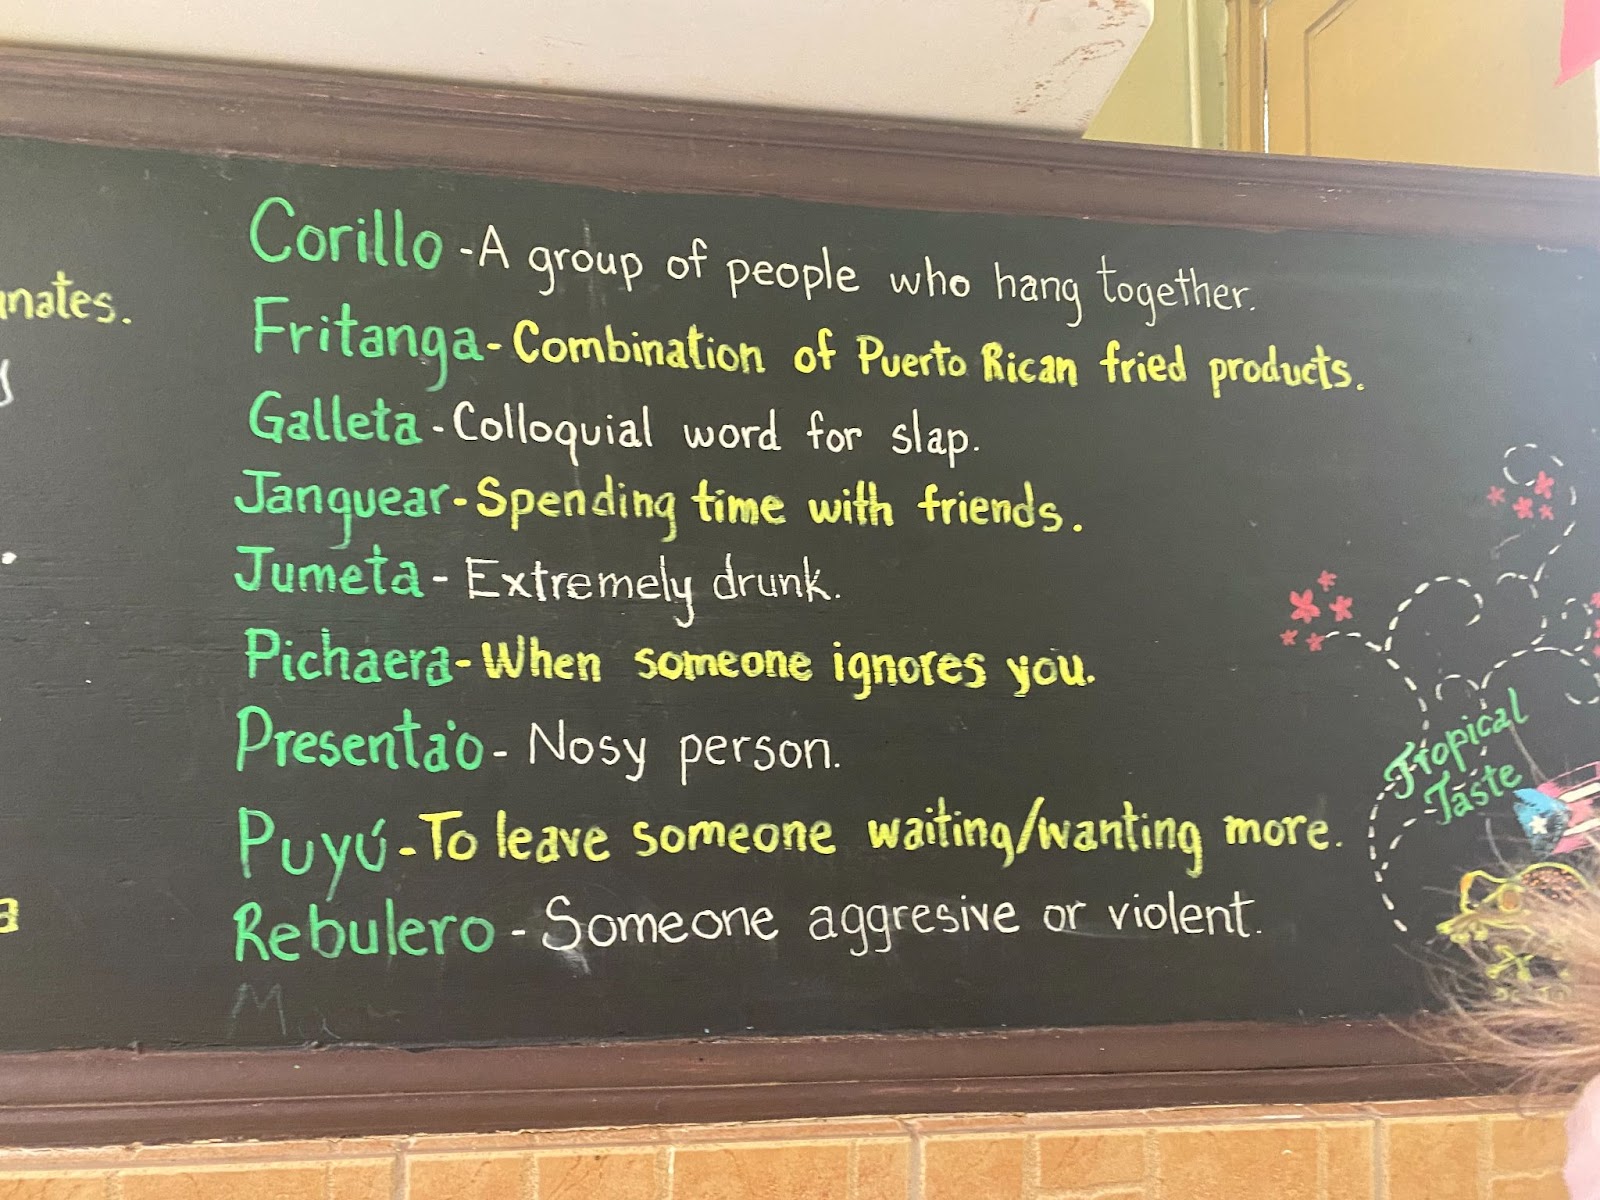 unates.
Corillo - A group of people who hang together.
Fritanga - Combination of Puerto Rican fried products.
Galleta - Colloquial word for slap.
Janguear - Spending time with friends.
Jumeta - Extremely drunk.
Pichaera - When someone ignores you.
Presenta'o - Nosy person.
Puyú - To leave someone waiting/wanting more.
Rebulero - Someone aggresive or violent.
Tropical
Taste